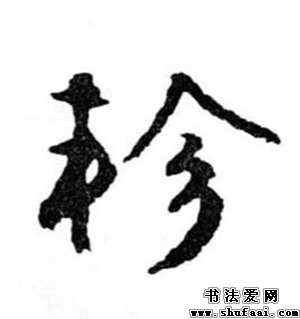 軫
书法爱网
www.shufaai.com